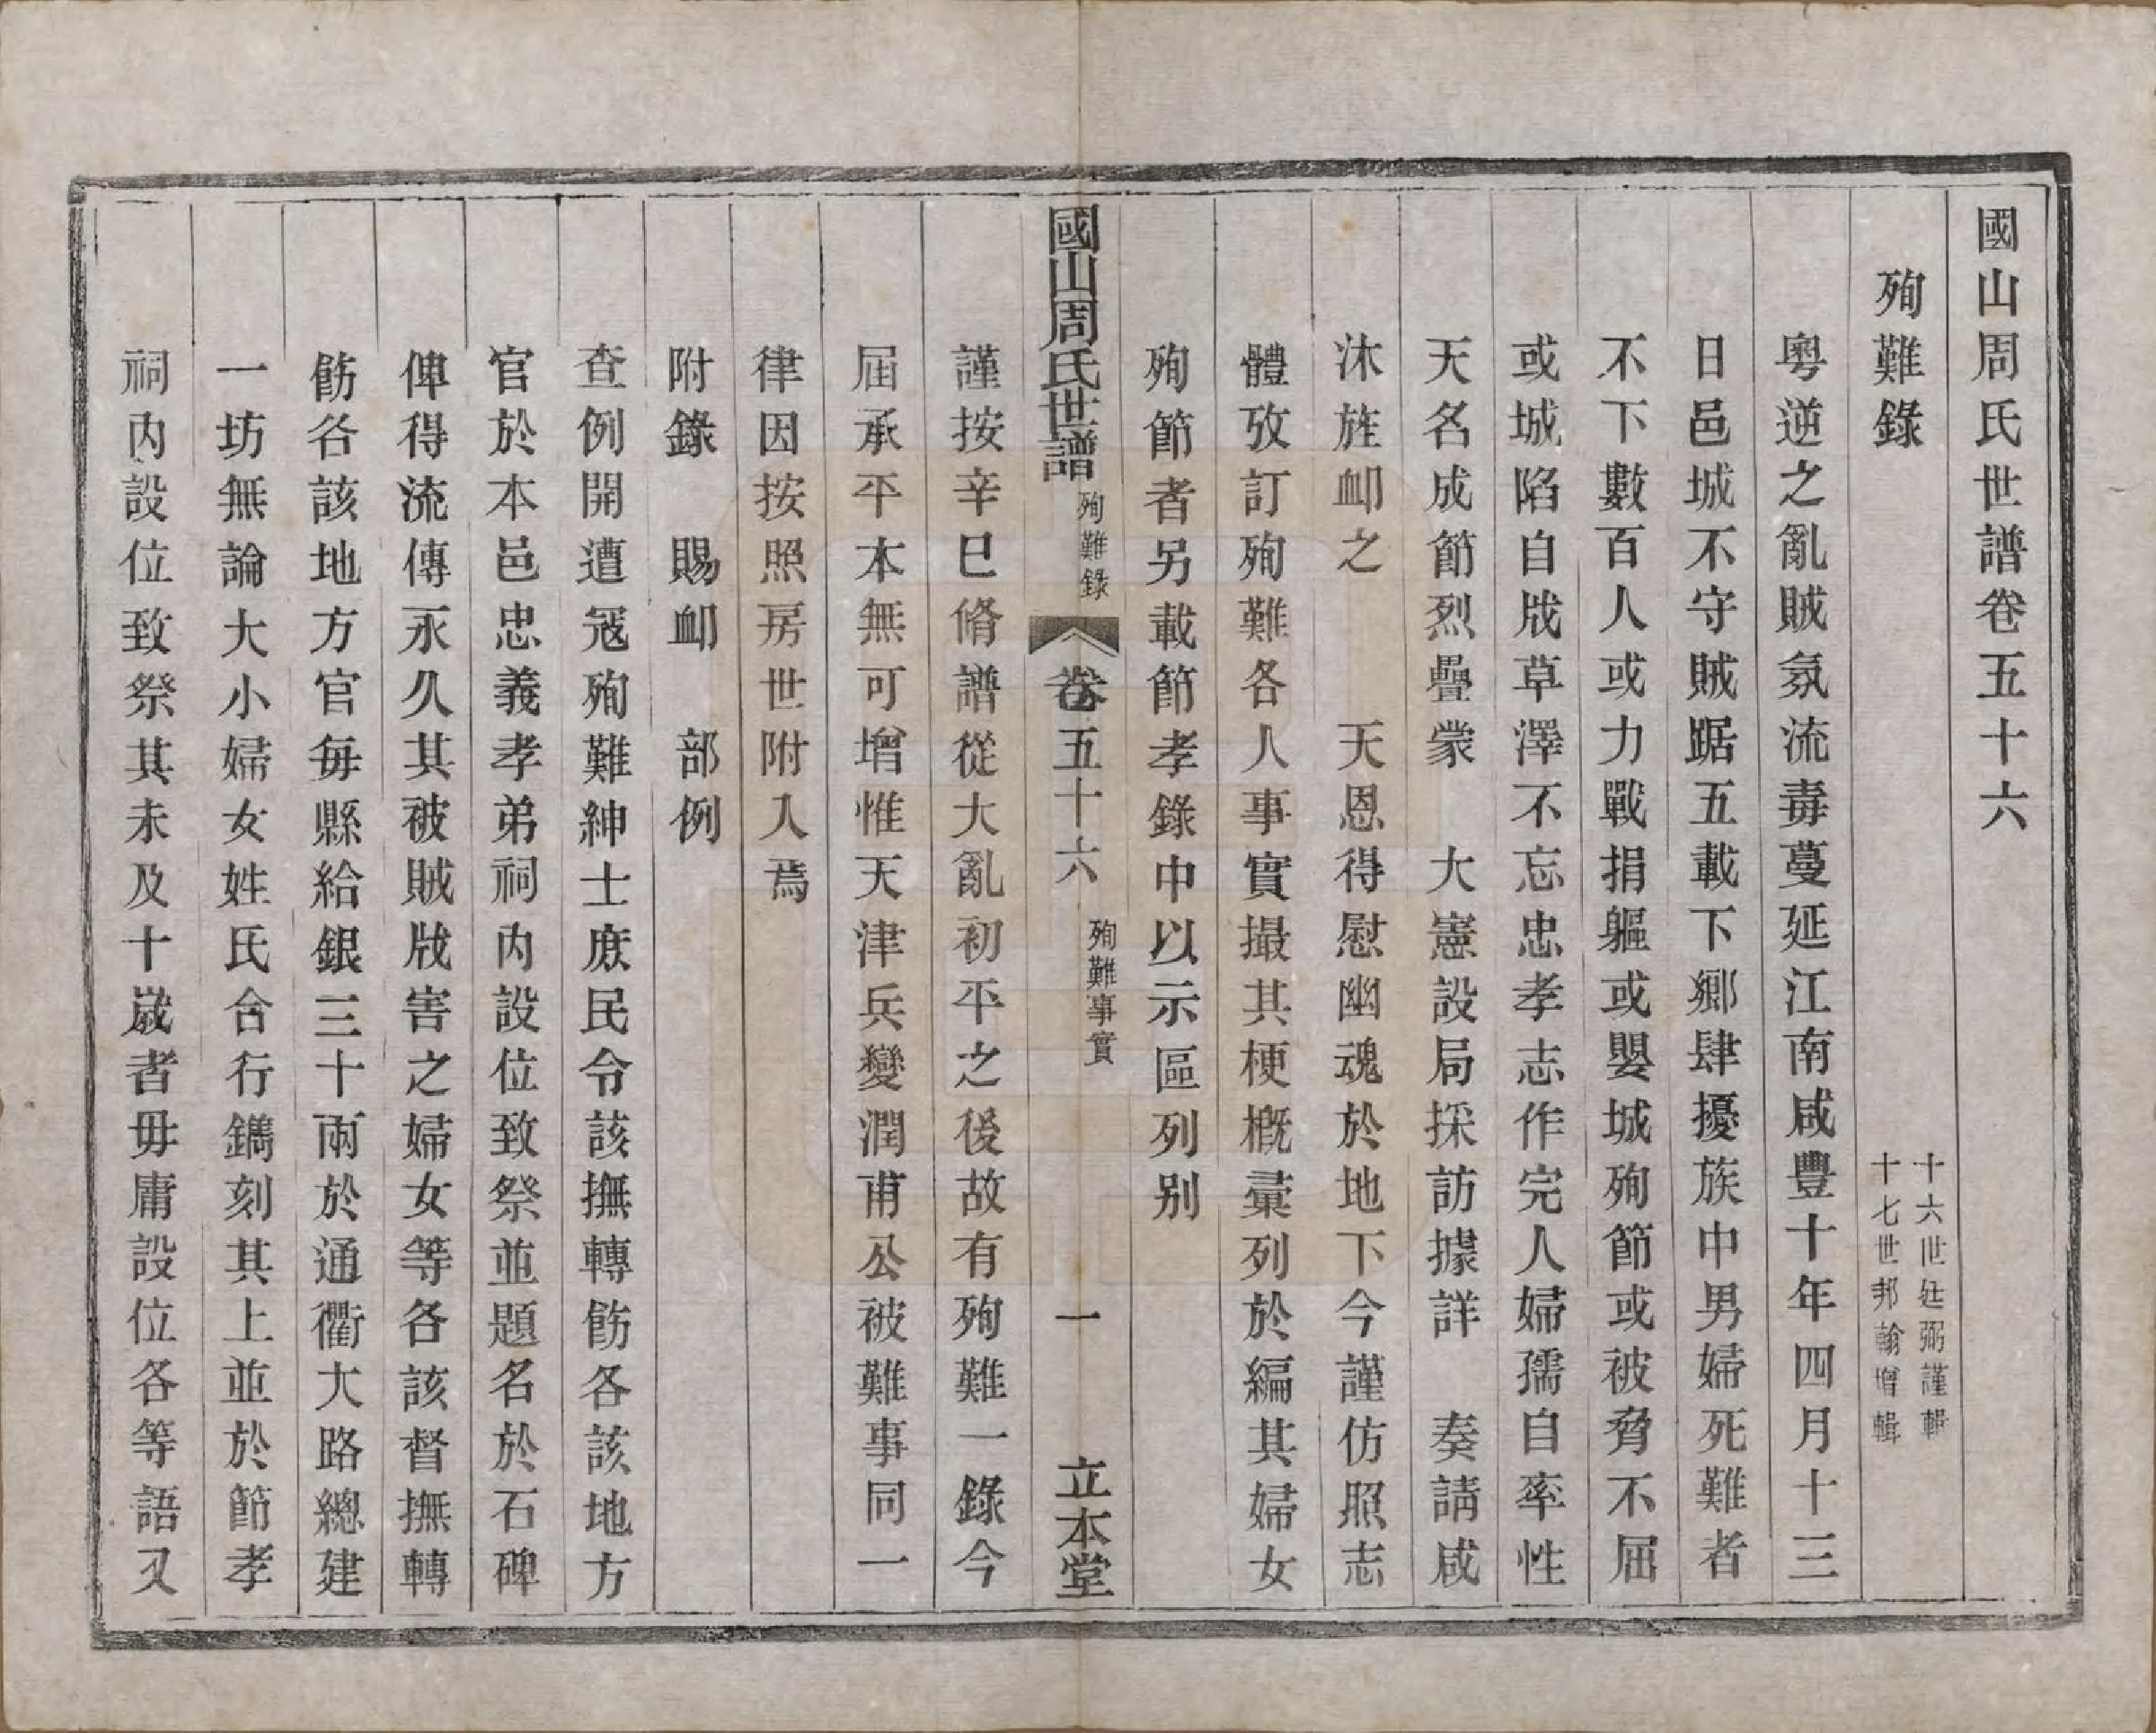 國山周氏世譜卷五十六
殉難錄
十六世廷弼謹輯
十七世邦翰增輯
粵逆之亂賊氛流毒蔓延江南咸豐十年四月十三
日邑城不守賊踞五載下鄉肆擾族中男婦死難者
不下數百人或力戰捐軀或嬰城殉節或被脅不屈
或城陷自戕草澤不忘忠孝志作完人婦孺自率性
天名成節烈疊蒙 大憲設局採訪據詳 奏請咸
沐旌卹之 天恩得慰幽魂於地下今謹仿照志
體攷訂殉難各人事實撮其梗概彙列於編其婦女
殉節者另載節孝錄中以示區列别
國山周氏世譜 殉難錄 卷五十六 殉難事實 一 立本堂
謹按辛巳脩譜從大亂初平之後故有殉難一錄今
屆承平本無可增惟天津兵變潤甫公被難事同一
律因按照房世附入焉
附錄 賜卹 部例
查例開遭冦殉難紳士庶民令該撫轉飭各該地方
官於本邑忠義孝弟祠内設位致祭並題名於石碑
俾得流傳永久其被賊戕害之婦女等各該督撫轉
飭各該地方官每縣給銀三十兩於通衢大路總建
一坊無論大小婦女姓氏合行鐫刻其上並於節孝
祠内設位致祭其未及十歲者毋庸設位各等語又